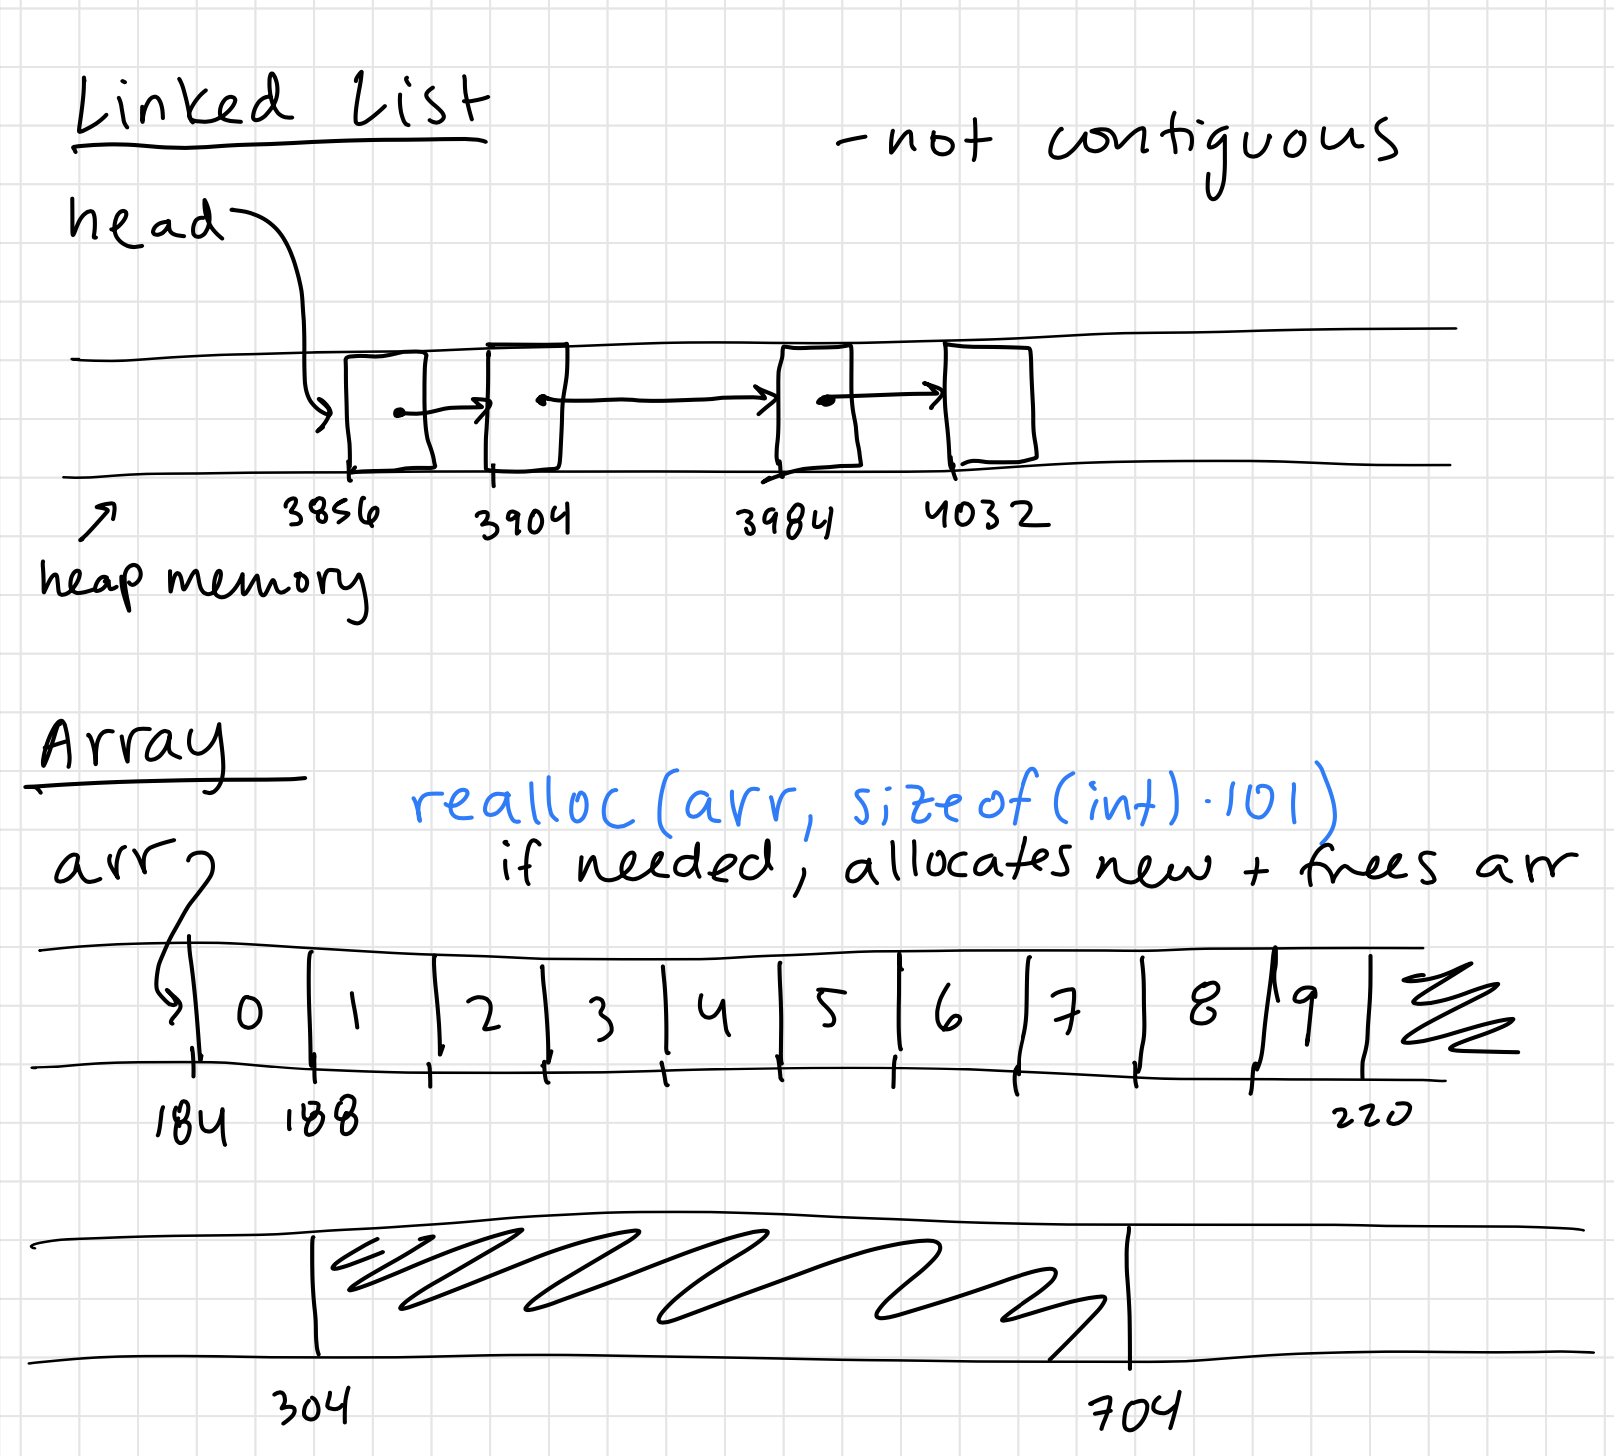 Linked List
- not contiguous
head
3856 3904 3984 4032
heap memory
Array
realloc(arr, sizeof(int)·101)
arr
if needed, allocates new + frees arr
0 1 2 3 4 5 6 7 8 9
184 188 220
304 704